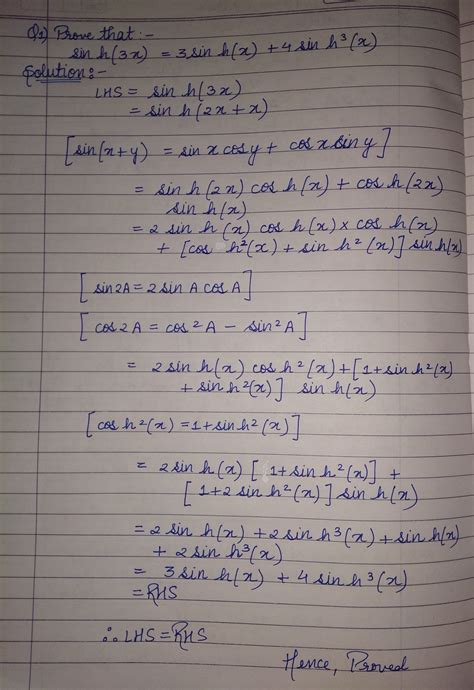 Q1) Prove that :-
sin h(3x) = 3 sin h(x) + 4 sin h³(x)
Solution :-
LHS = sin h(3x)
= sin h(2x + x)
[sin(x+y) = sin x cos y + cos x sin y]
= sin h(2x) cos h(x) + cos h(2x)
sin h(x)
= 2 sin h(x) cos h(x) × cos h(x)
+ [cos h²(x) + sin h²(x)] sin h(x)
[sin 2A = 2 sin A cos A]
[cos 2A = cos² A - sin² A]
= 2 sin h(x) cos h²(x) + [1 + sin h²(x)
+ sin h²(x)] sin h(x)
[cos h²(x) = 1 + sin h²(x)]
= 2 sin h(x) [1 + sin h²(x)] +
[1 + 2 sin h²(x)] sin h(x)
= 2 sin h(x) + 2 sin h³(x) + sin h(x)
+ 2 sin h³(x)
= 3 sin h(x) + 4 sin h³(x)
= RHS
∴ LHS = RHS
Hence, Proved